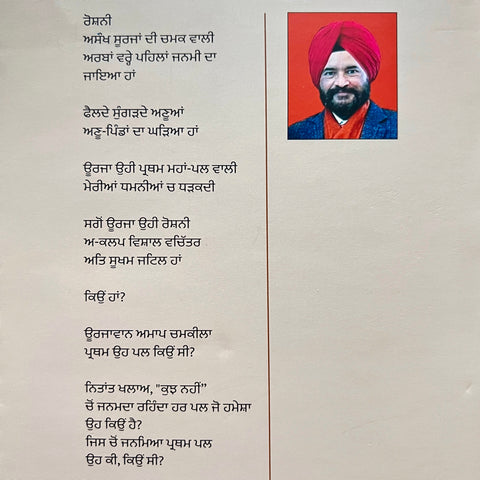 ਰੋਸ਼ਨੀ
ਅਸੰਖ ਸੂਰਜਾਂ ਦੀ ਚਮਕ ਵਾਲੀ
ਅਰਬਾਂ ਵਰ੍ਹੇ ਪਹਿਲਾਂ ਜਨਮੀ ਦਾ
ਜਾਇਆ ਹਾਂ
ਫੈਲਦੇ ਸੁੰਗੜਦੇ ਅਣੂਆਂ
ਅਣੂ-ਪਿੰਡਾਂ ਦਾ ਘੜਿਆ ਹਾਂ
ਊਰਜਾ ਉਹੀ ਪ੍ਰਥਮ ਮਹਾਂ-ਪਲ ਵਾਲੀ
ਮੇਰੀਆਂ ਧਮਨੀਆਂ ਚ ਧੜਕਦੀ
ਸਗੋਂ ਊਰਜਾ ਉਹੀ ਰੋਸ਼ਨੀ
ਅ-ਕਲਪ ਵਿਸ਼ਾਲ ਵਚਿੱਤਰ
ਅਤਿ ਸੂਖਮ ਜਟਿਲ ਹਾਂ
ਕਿਉਂ ਹਾਂ?
ਊਰਜਾਵਾਨ ਅਮਾਪ ਚਮਕੀਲਾ
ਪ੍ਰਥਮ ਉਹ ਪਲ ਕਿਉਂ ਸੀ?
ਨਿਤਾਂਤ ਖਲਾਅ, "ਕੁਝ ਨਹੀਂ”
ਚੋਂ ਜਨਮਦਾ ਰਹਿੰਦਾ ਹਰ ਪਲ ਜੋ ਹਮੇਸ਼ਾ
ਉਹ ਕਿਉਂ ਹੈ?
ਜਿਸ ਚੋਂ ਜਨਮਿਆ ਪ੍ਰਥਮ ਪਲ
ਉਹ ਕੀ, ਕਿਉਂ ਸੀ?